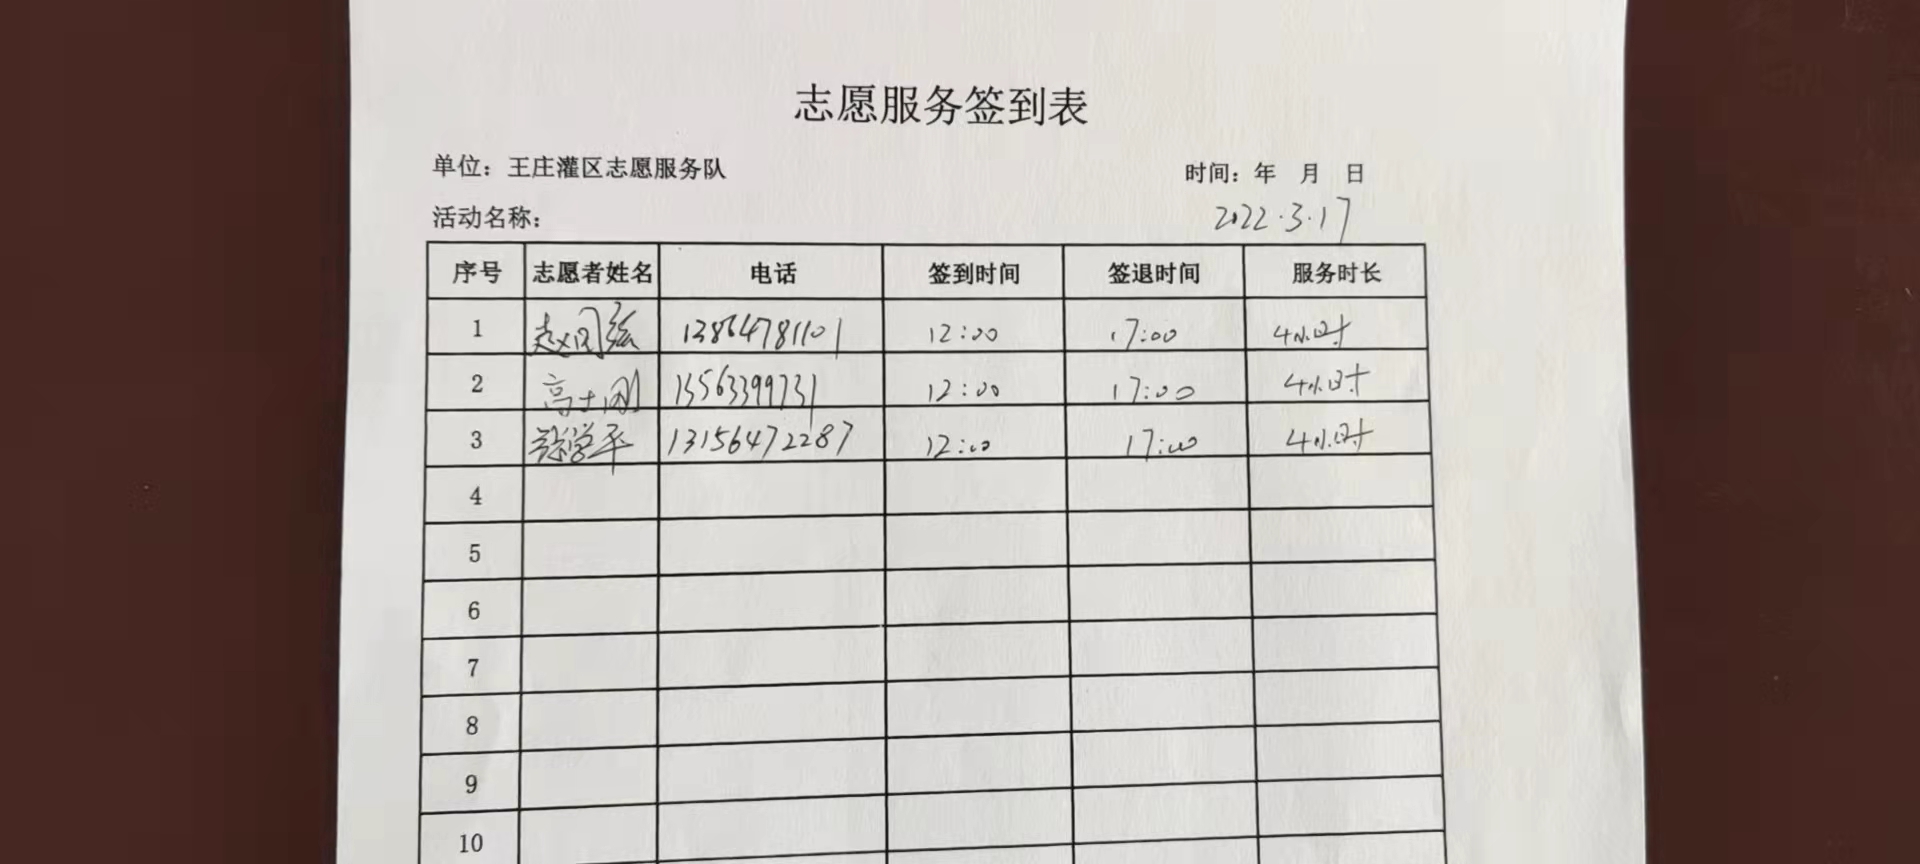 志愿服务签到表
单位：王庄灌区志愿服务队 时间：年 月 日
活动名称： 2022.3.17
序号 志愿者姓名 电话 签到时间 签退时间 服务时长
1 13864781101 12:00 17:00 4小时
2 高士刚 13563399731 12:00 17:00 4小时
3 13156472287 12:00 17:00 4小时
4
5
6
7
8
9
10